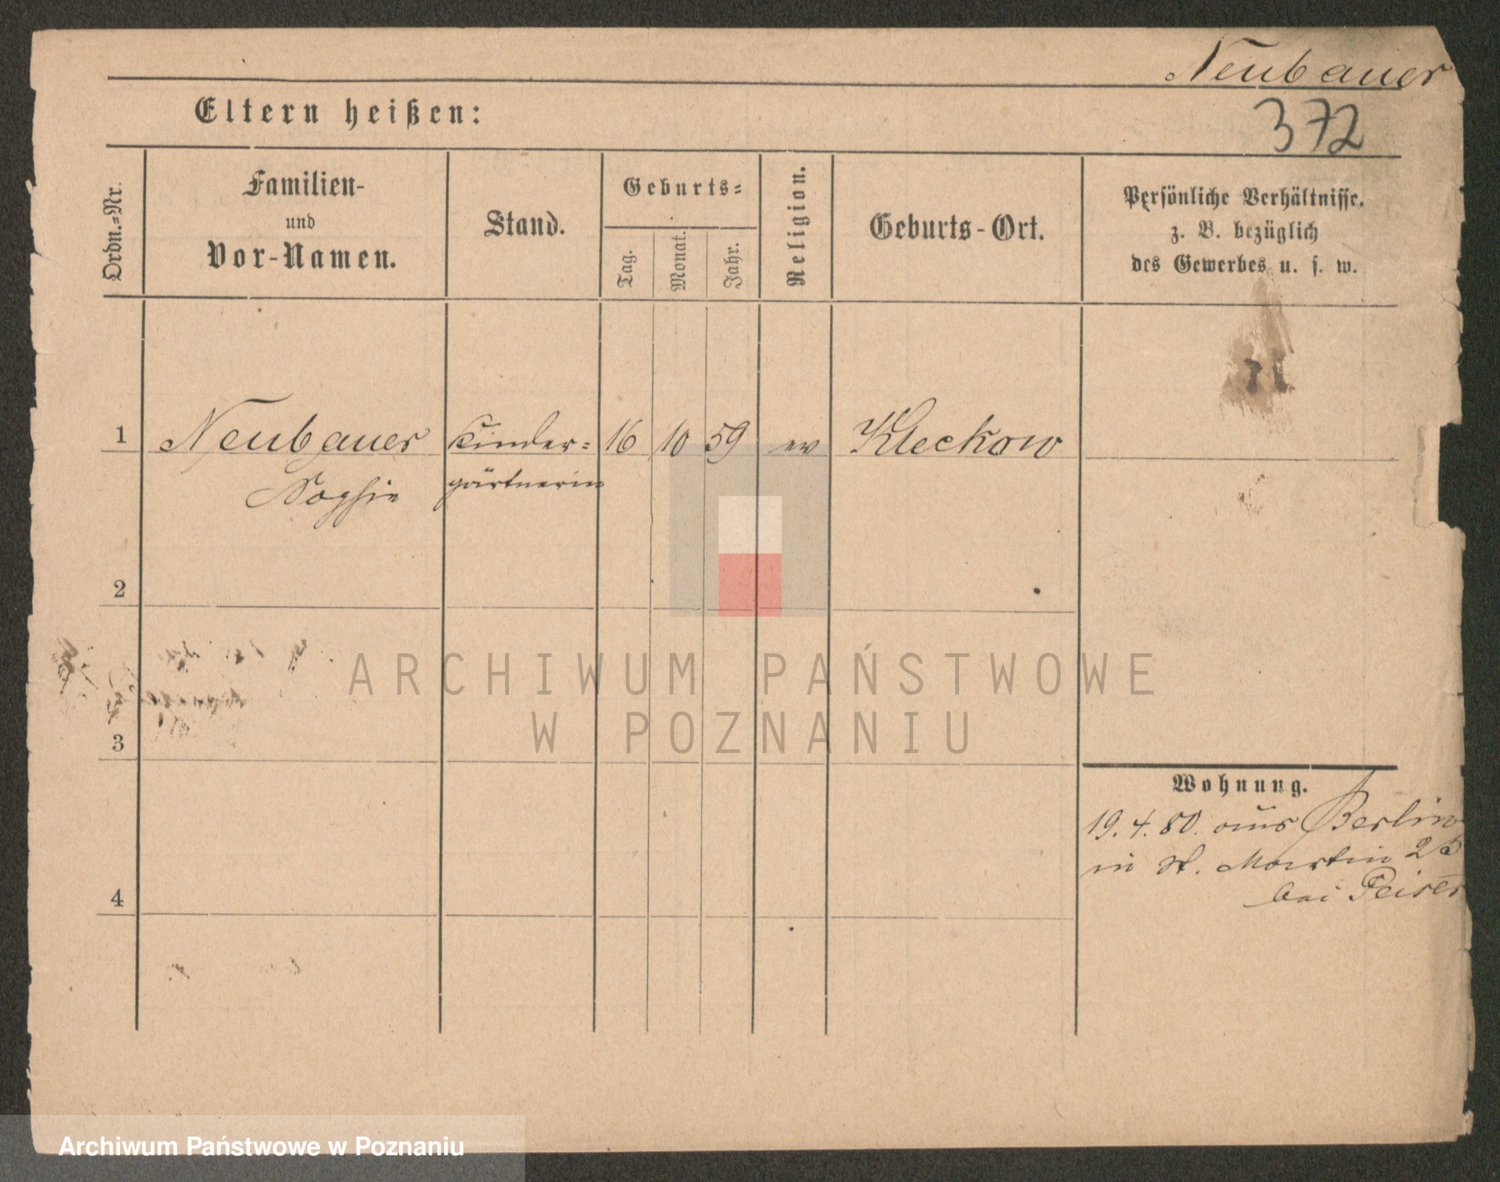 Neubauer
372
Eltern heißen:
Ordn.-Nr.
Familien-
und
Vor-Namen.
Stand.
Geburts-
Tag.
Monat.
Jahr.
Religion.
Geburts-Ort.
Persönliche Verhältnisse.
z. B. bezüglich
des Gewerbes u. s. w.
1
Neubauer Kinder- 16 10 59 ev Kleckow
Sophie gärtnerin
2
3
4
Wohnung.
19.4.80. aus Berlin
in St. Martin
bei Peiser
ARCHIWUM PAŃSTWOWE
W POZNANIU
Archiwum Państwowe w Poznaniu